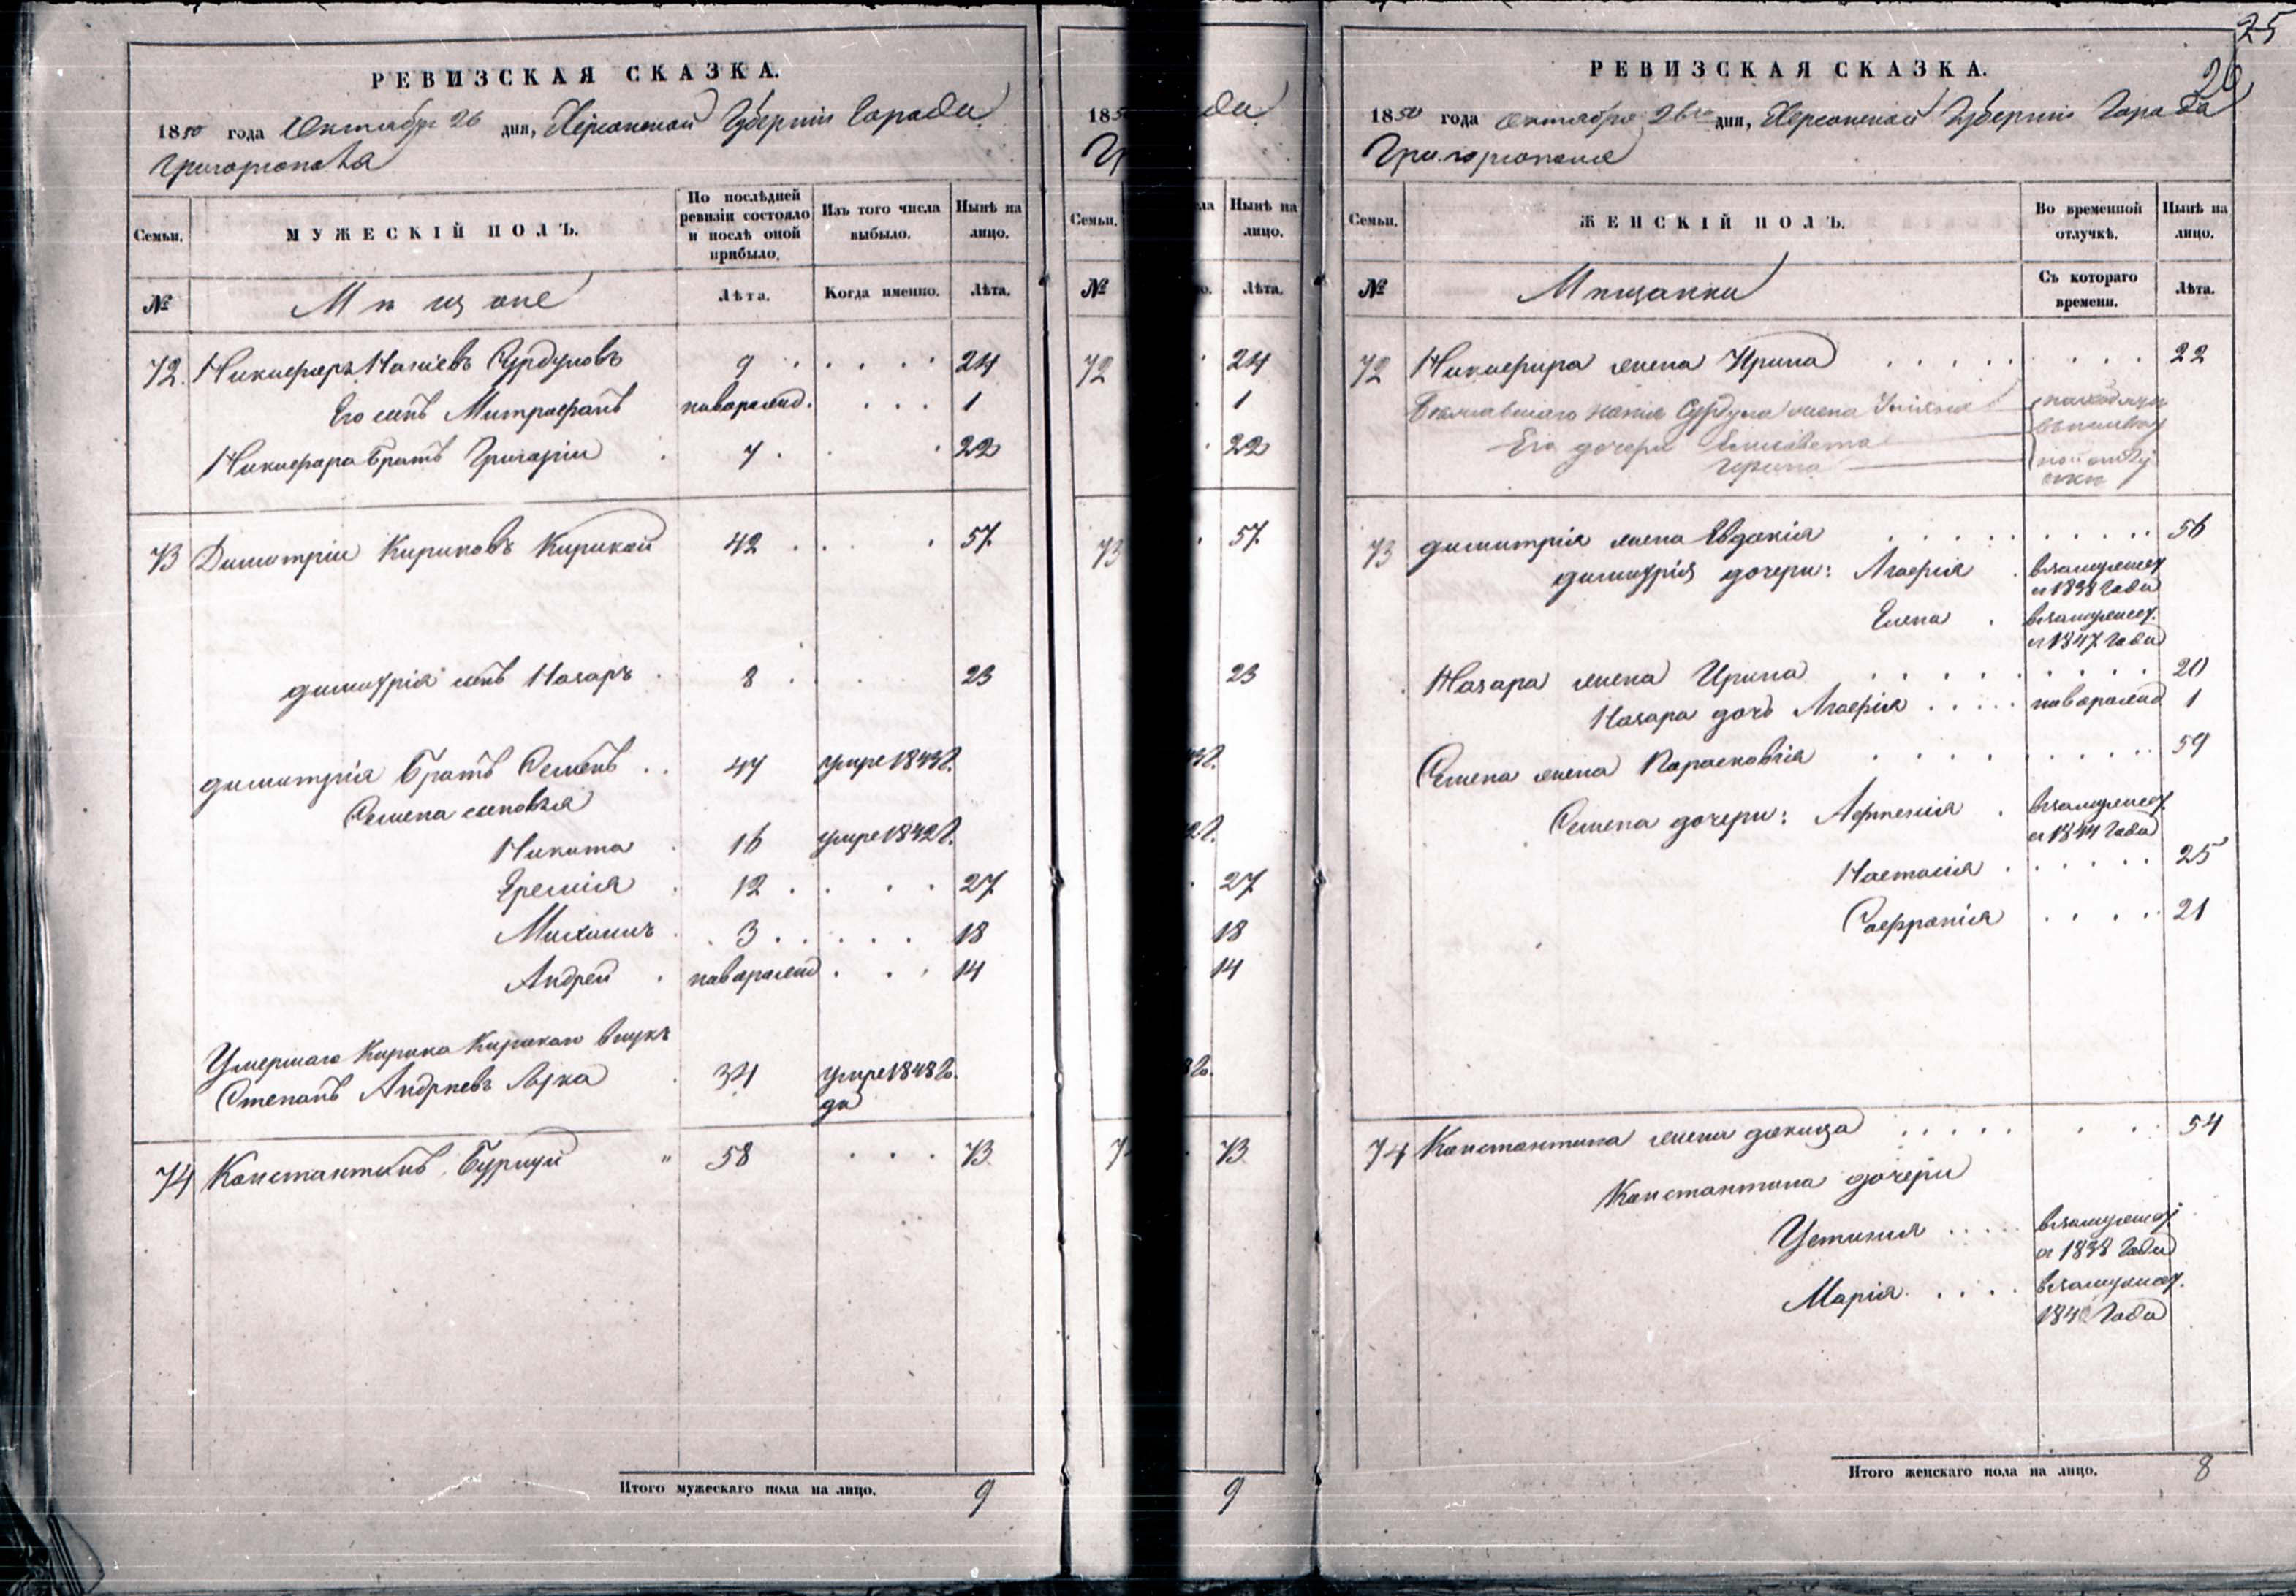 25
26
РЕВИЗСКАЯ СКАЗКА.
1850 года Октября 26 дня, Херсонской Губерніи Города
Григоріополя
Семьи.
МУЖЕСКІЙ ПОЛЪ.
По послѣдней ревизіи состояло и послѣ оной прибыло.
Изъ того числа выбыло.
Нынѣ на лицо.
№
Мѣщане
Лѣта.
Когда именно.
Лѣта.
72. Никифоръ Сурдуловъ 9 24
Его сынъ Митрофанъ наворожд. 1
Никифора братъ Григорій 7 22
73 Димитрій Кириковъ Кирикой 42 57
Димитрія сынъ Назаръ 8 23
Димитрія братъ Семенъ 47 умре 1843г.
Семена сыновья
Никита 16 умре 1842г.
Еремія 12 27
Михаилъ 3 18
Андрей наворожд 14
Умершаго Кирика внукъ
Степанъ Андріевъ 34 умре 1848го
да
74 Константинъ Буруцуй " 58 73
Итого мужескаго пола на лицо. 9
185
Гр
да
Семьи.
ла
Нынѣ на лицо.
№
о.
Лѣта.
72 24
1
22
73 57
23
43г.
42г.
27
18
14
8го.
7 73
9
РЕВИЗСКАЯ СКАЗКА.
1850 года Октября 26го дня, Херсонской Губерніи Города
Григоріополя
Семьи.
ЖЕНСКІЙ ПОЛЪ.
Во временной отлучкѣ.
Нынѣ на лицо.
№
Мѣщанки
Съ котораго времени.
Лѣта.
72 Никифора жена Ирина 22
жена
Его дочери Елисавета
Ирина
73 Димитрія жена Евдокія 56
Димитрія дочери: Агафія взамужест
с 1838 года
Елена взамужест.
с 1847 года
Назара жена Ирина 20
Назара дочь Агафія наворожд 1
Семена жена Парасковія 59
Семена дочери: взамужест
с 1844 года
Настасія 25
Софронія 21
74 Константина жена Докица 54
Константина дочери
Устинія взамужест
с 1838 года
Марія взамужест.
года
Итого женскаго пола на лицо. 8